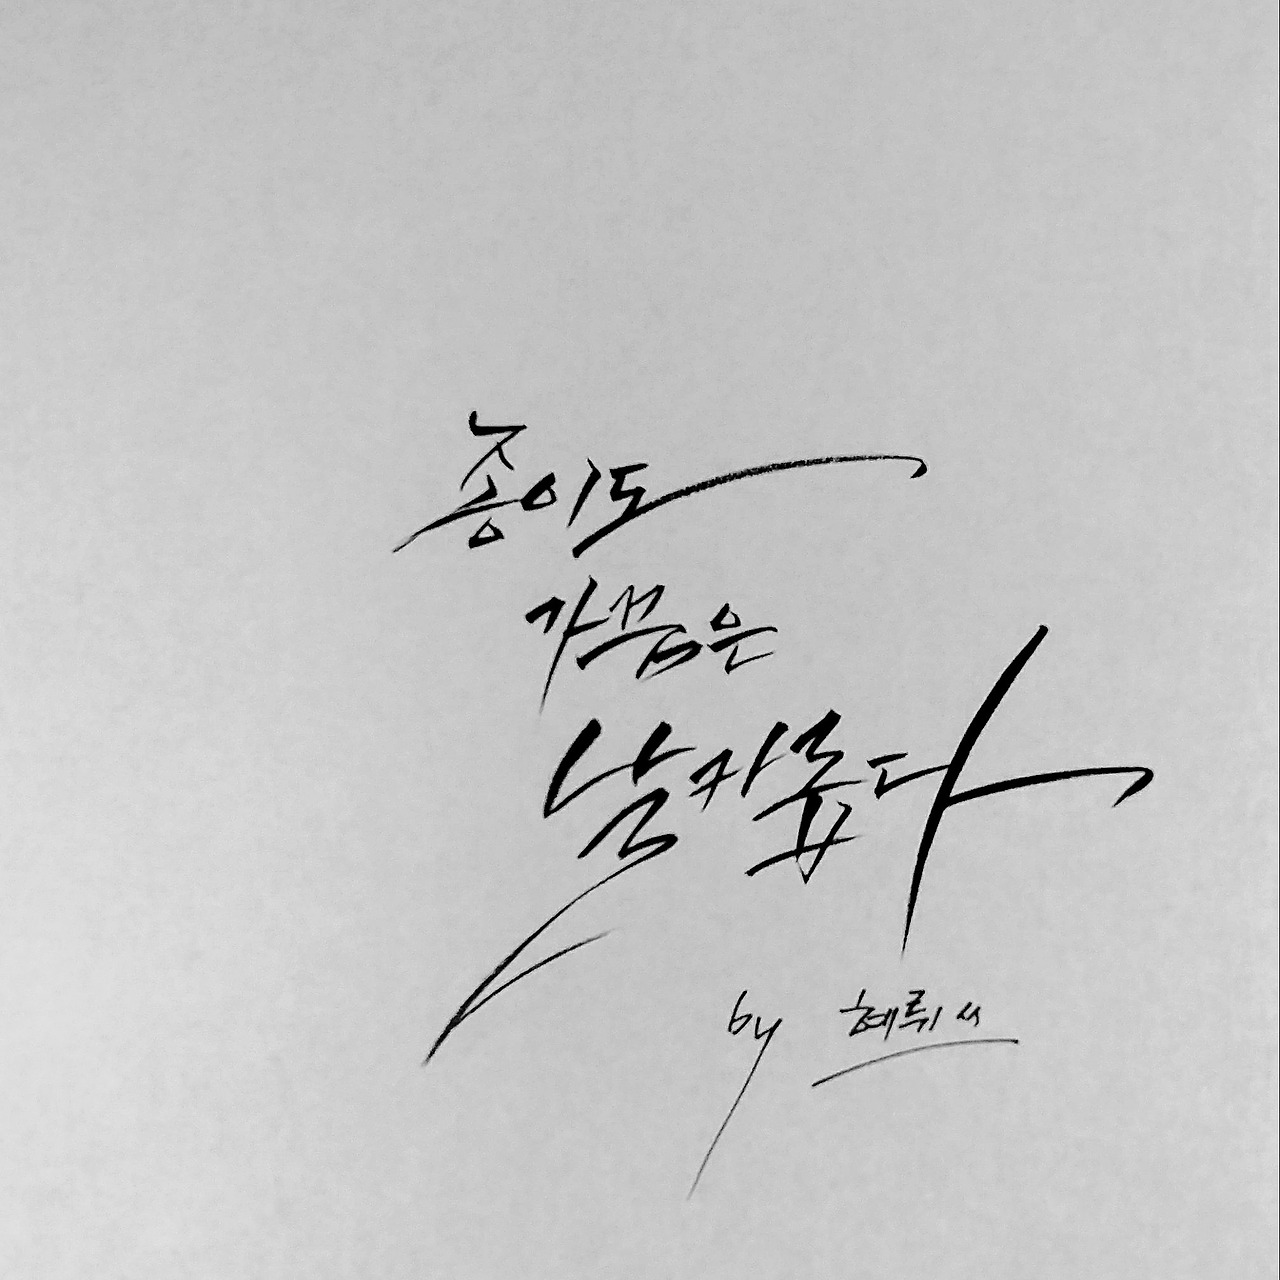 종이도
가끔은
날카롭다
by 혜뤼쓰